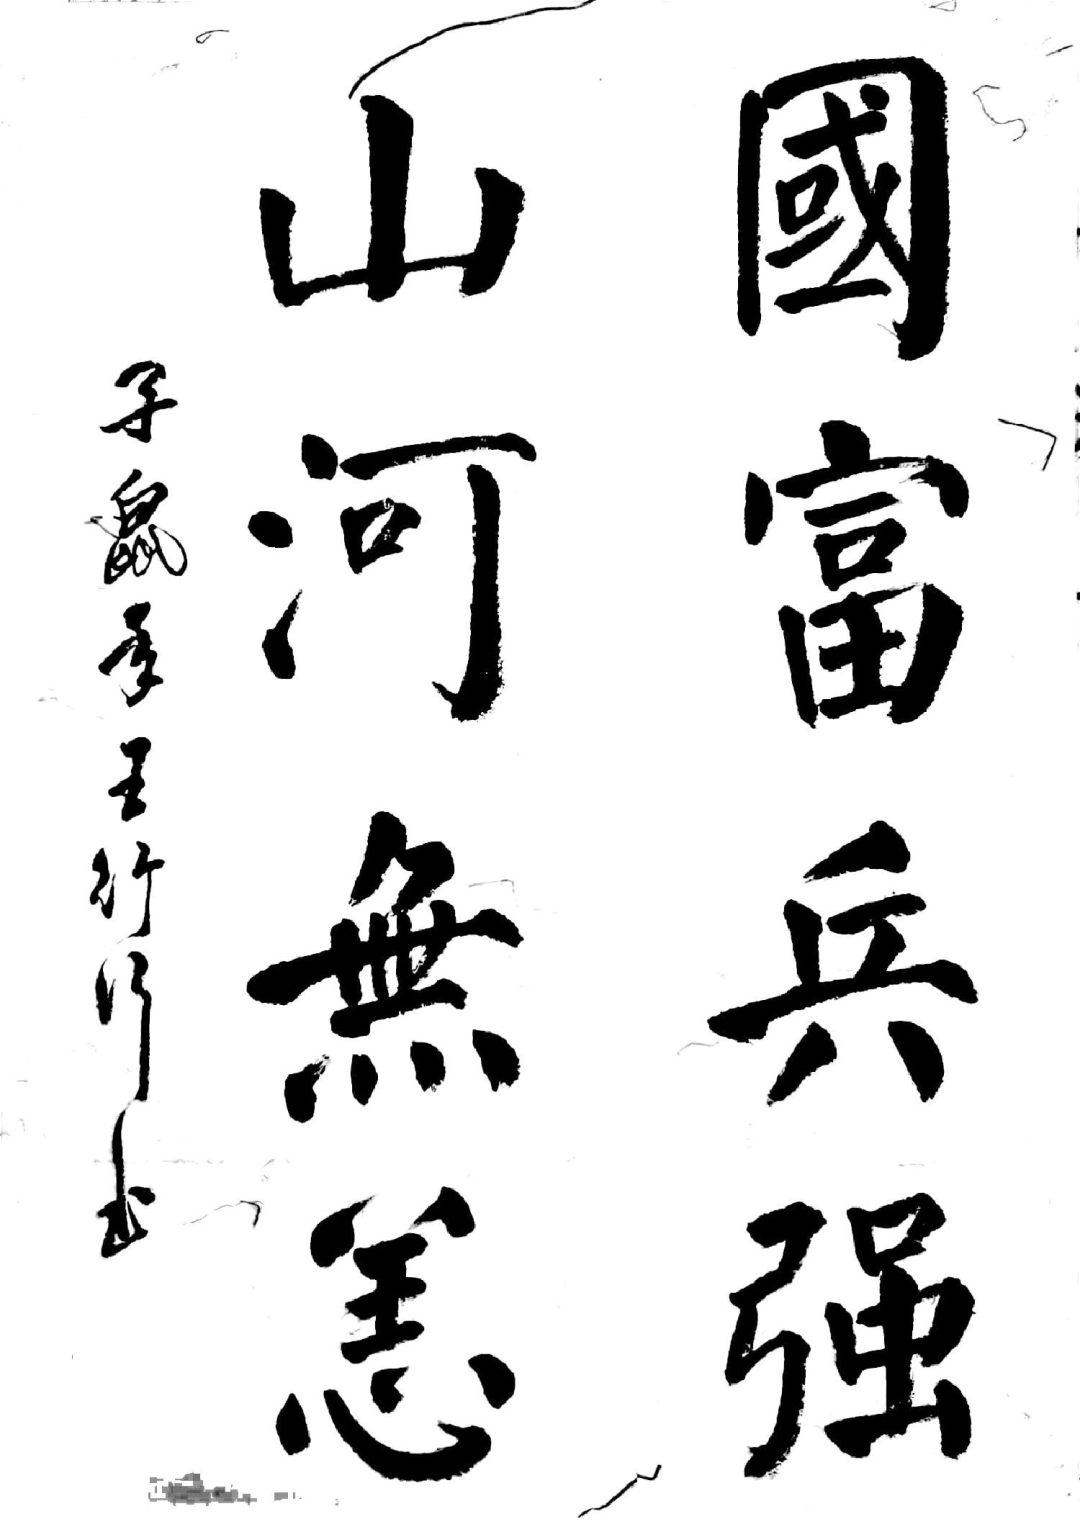 國富兵强
山河無恙
子鼠年王竹行书